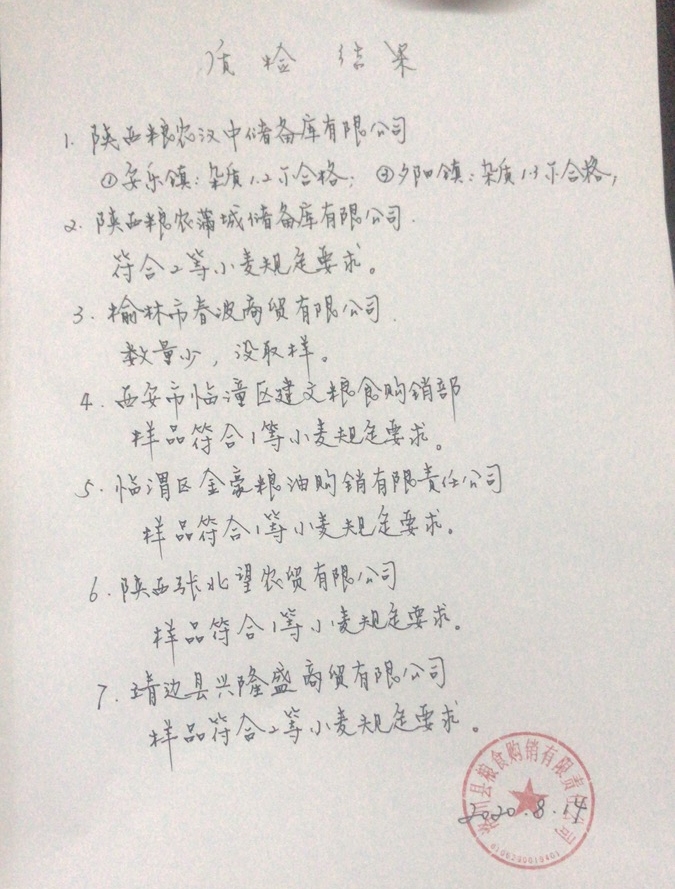 质检结果
1. 陕西粮农汉中储备库有限公司
①安乐镇：杂质1.2不合格；②夕阳镇：杂质1.3不合格，
2. 陕西粮农蒲城储备库有限公司.
符合2等小麦规定要求。
3. 榆林市春波商贸有限公司.
数量少，没取样。
4. 西安市临潼区建文粮食购销部
样品符合1等小麦规定要求。
5. 临渭区金豪粮油购销有限责任公司
样品符合1等小麦规定要求。
6. 陕西张北望农贸有限公司
样品符合1等小麦规定要求。
7. 靖边县兴隆盛商贸有限公司
样品符合2等小麦规定要求。
川县粮食购销有限责任公司
2020.8.14